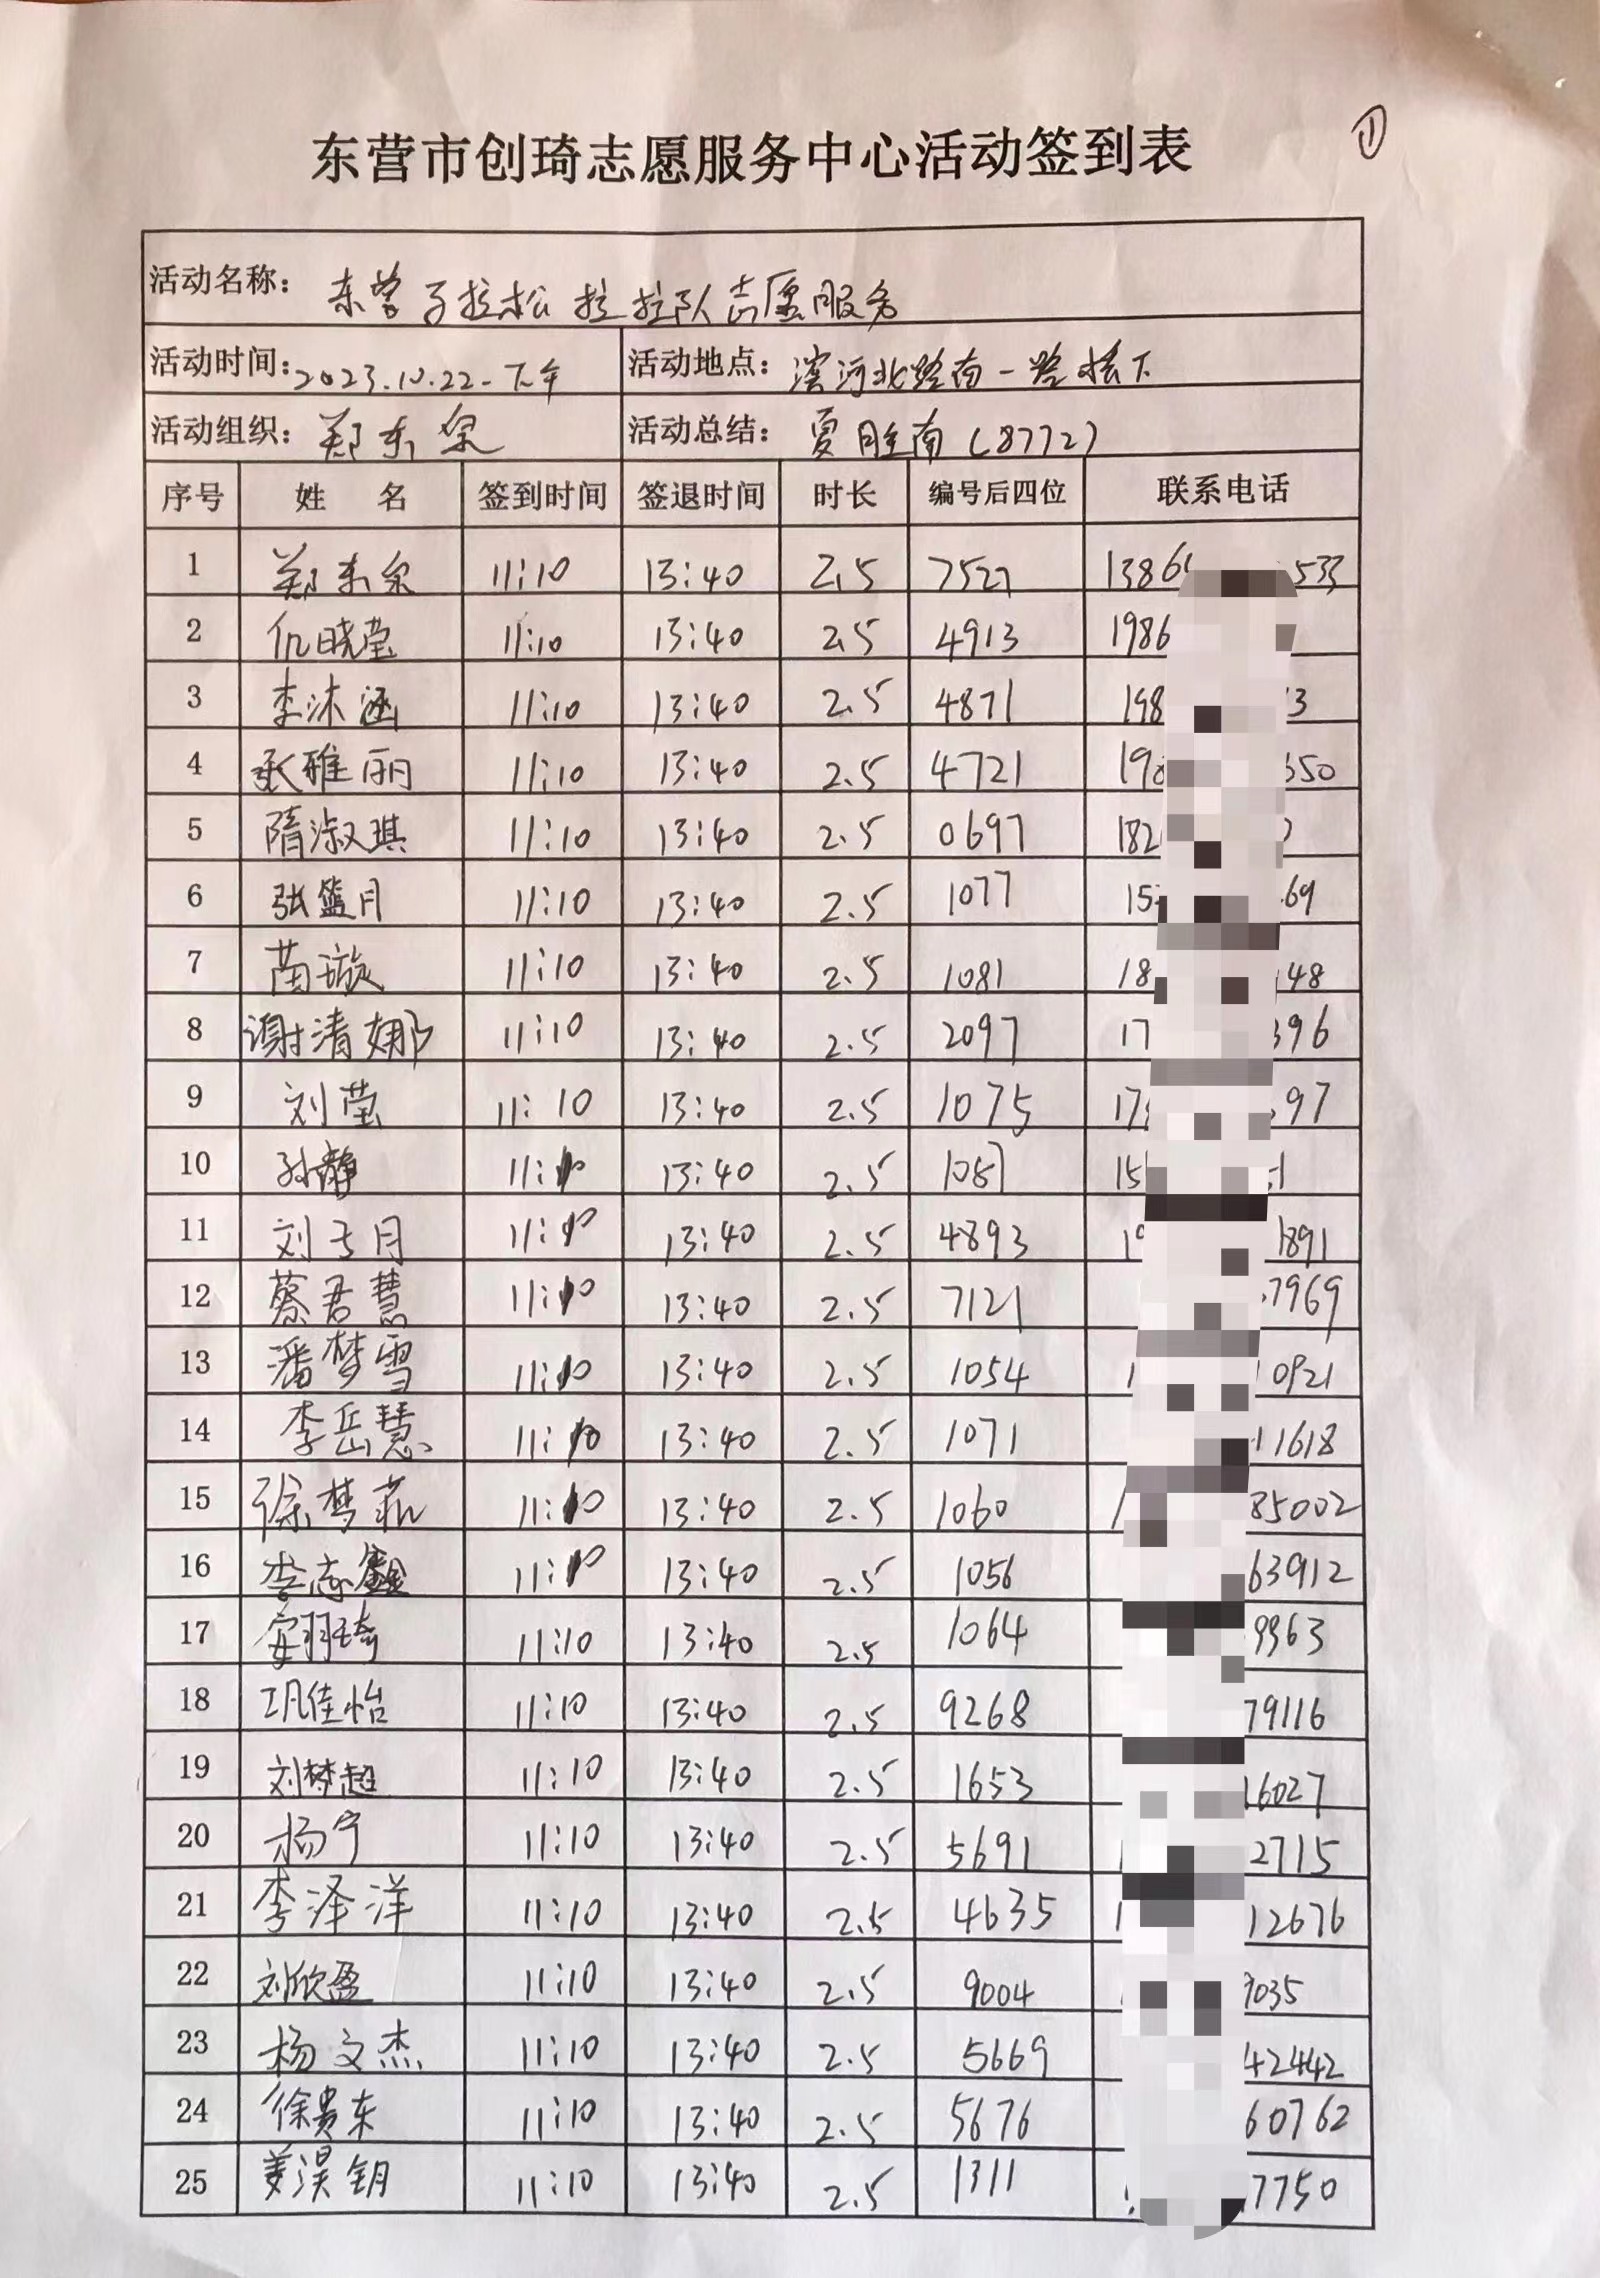 ①
东营市创琦志愿服务中心活动签到表
活动名称: 东营马拉松拉拉队志愿服务
活动时间: 2023.10.22-下午 活动地点: 滨河北路南一路桥下
活动组织: 郑东泉 活动总结: 夏胜南(8772)
序号 姓 名 签到时间 签退时间 时长 编号后四位 联系电话
1 郑东泉 11:10 13:40 2.5 7527 1386 533
2 仉晓莹 11:10 13:40 2.5 4913 1986
3 李沐涵 11:10 13:40 2.5 4871 198 3
4 张雅丽 11:10 13:40 2.5 4721 198 650
5 隋淑琪 11:10 13:40 2.5 0697 182
6 张篮月 11:10 13:40 2.5 1077 15 69
7 苗璇 11:10 13:40 2.5 1081 18 48
8 谢清娜 11:10 13:40 2.5 2097 17 396
9 刘莹 11:10 13:40 2.5 1075 17 97
10 孙静 11:10 13:40 2.5 1057 15 1
11 刘子月 11:10 13:40 2.5 4893 19 1891
12 蔡君慧 11:10 13:40 2.5 7121 7969
13 潘梦雪 11:10 13:40 2.5 1054 1 0921
14 李岳慧 11:10 13:40 2.5 1071 11618
15 徐梦菲 11:10 13:40 2.5 1060 1 85002
16 李志鑫 11:10 13:40 2.5 1056 63912
17 安羽琦 11:10 13:40 2.5 1064 9963
18 巩佳怡 11:10 13:40 2.5 9268 79116
19 刘梦超 11:10 13:40 2.5 1653 16027
20 杨宁 11:10 13:40 2.5 5691 1 2715
21 李泽洋 11:10 13:40 2.5 4635 1 12676
22 刘欣盈 11:10 13:40 2.5 9004 9035
23 杨文杰 11:10 13:40 2.5 5669 42442
24 徐贵东 11:10 13:40 2.5 5676 60762
25 姜淏钥 11:10 13:40 2.5 1311 7750